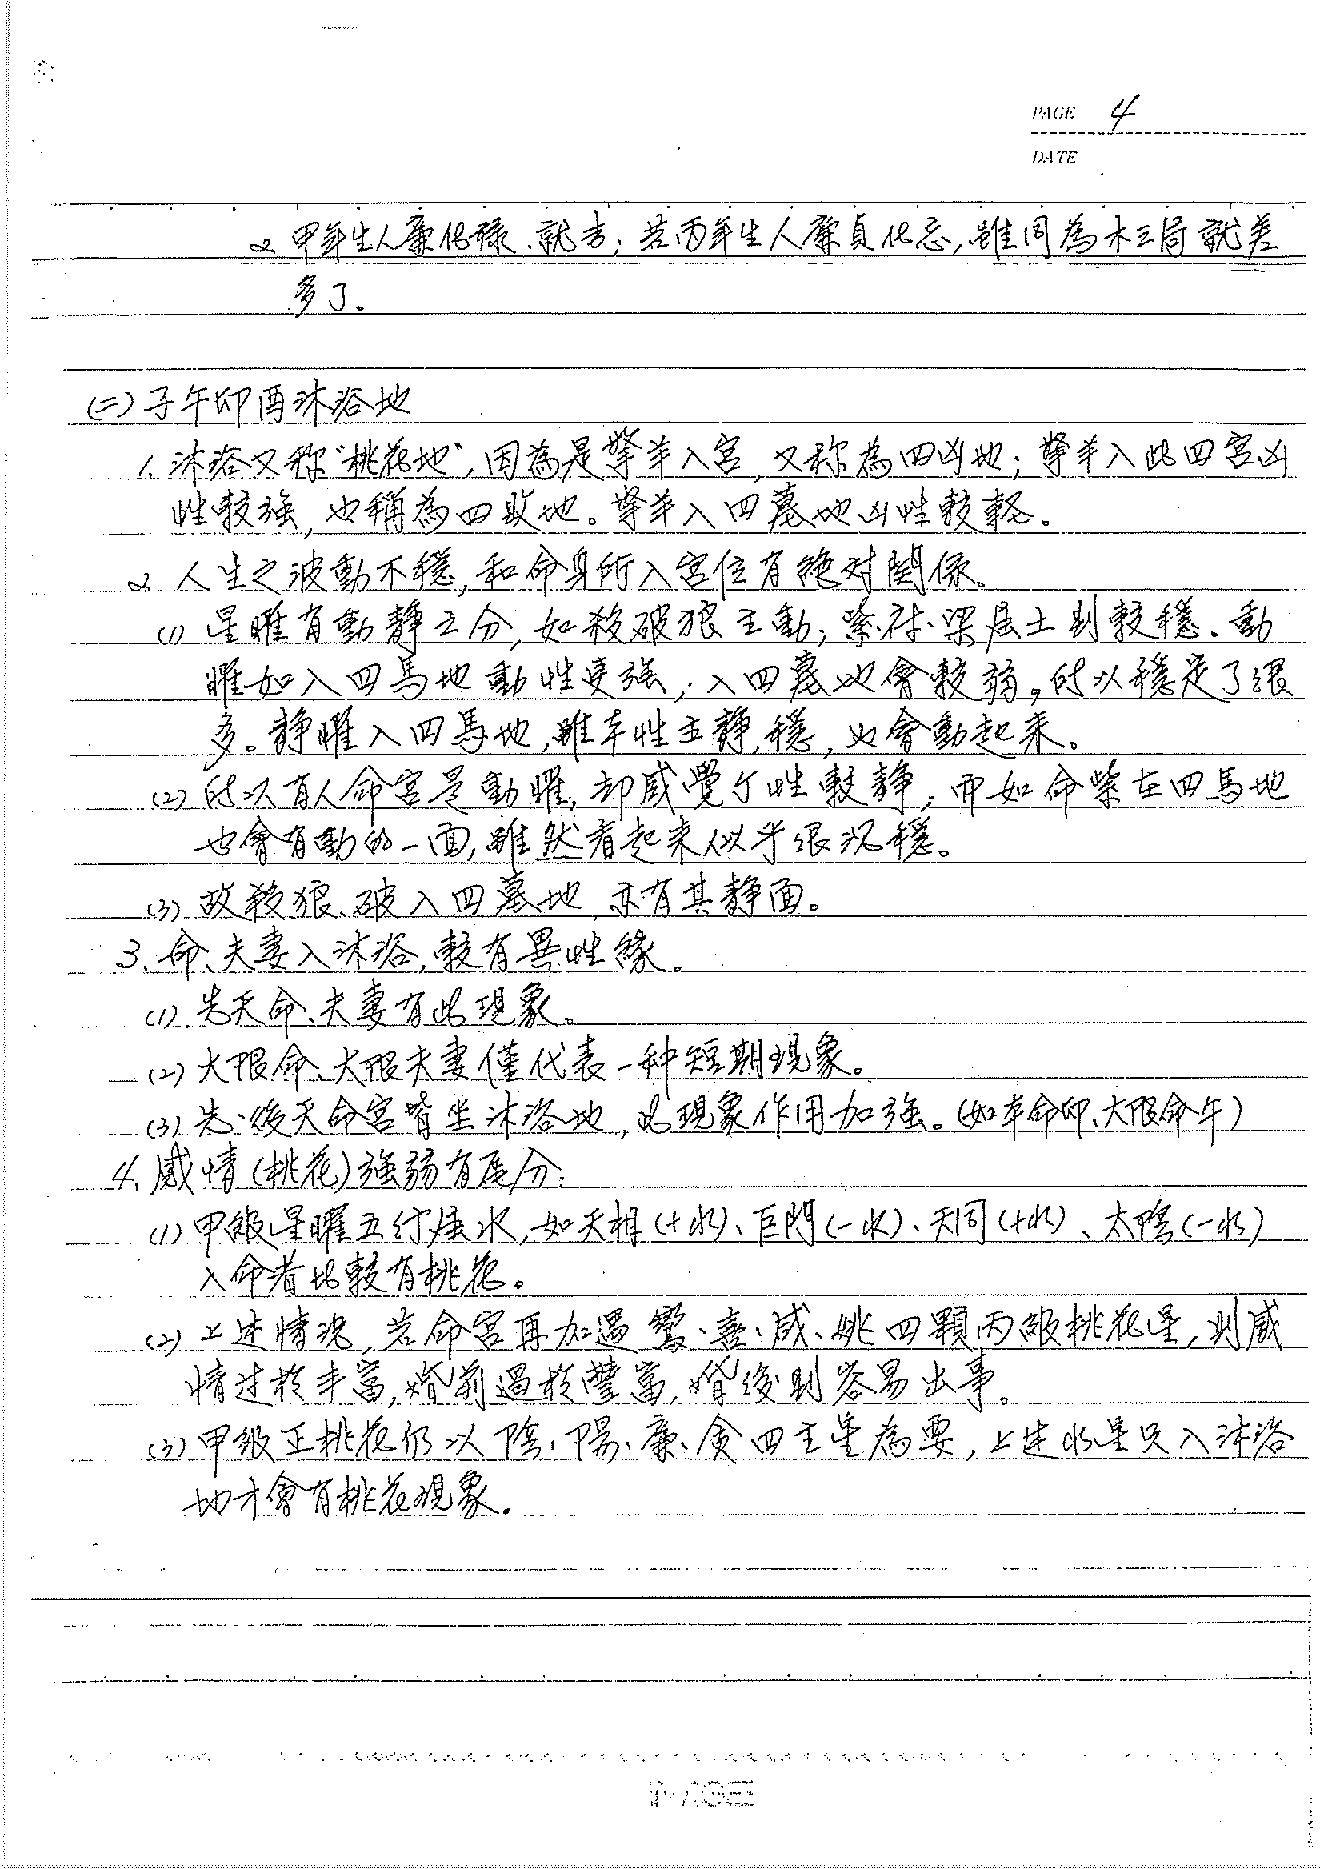 PAGE 4
DATE
2. 甲年生人廉化祿、就吉；若丙年生人廉貞化忌，雖同為木三局就差
多了。
(二)子午卯酉沐浴地
1. 沐浴又称“桃花地”，因為是擎羊入宮，又称為四凶地；擎羊入此四宮凶
性較強，也稱為四敗地。擎羊入四墓地凶性較輕。
2. 人生之波動不穩，和命身所入宮位有絕对関係。
(1) 星曜有動靜之分，如殺破狼主動；紫、府、梁屬土則較穩、動
曜如入四馬地動性更強；入四墓地會較弱。所以穩定了很
多。靜曜入四馬地，雖本性主靜、穩，也會動起來。
(2) 所以有人命宮是動曜，却感覺个性較靜，而如命紫在四馬地
也會有動的一面，雖然看起來似乎很沉穩。
(3) 故殺狼、破入四墓地，亦有其靜面。
3. 命、夫妻入沐浴，較有異性緣。
(1) 先天命、夫妻有此現象。
(2) 大限命、大限夫妻僅代表一种短期現象。
(3) 先、後天命宮皆坐沐浴地，此現象作用加強。(如本命卯、大限命午)
4. 感情(桃花)強弱有區分：
(1) 甲級星曜五行屬水，如天相(+水)、巨門(-水)、天同(+水)、太陰(-水)
入命者比較有桃花。
(2) 上述情況，若命宮再加遇鸞、喜、咸、姚四顆丙級桃花星，則感
情过於丰富，婚前過於豐富，婚後則容易出事。
(3) 甲級正桃花仍以陰、陽、廉、貪四主星為要，上述水星只入沐浴
地才會有桃花現象。